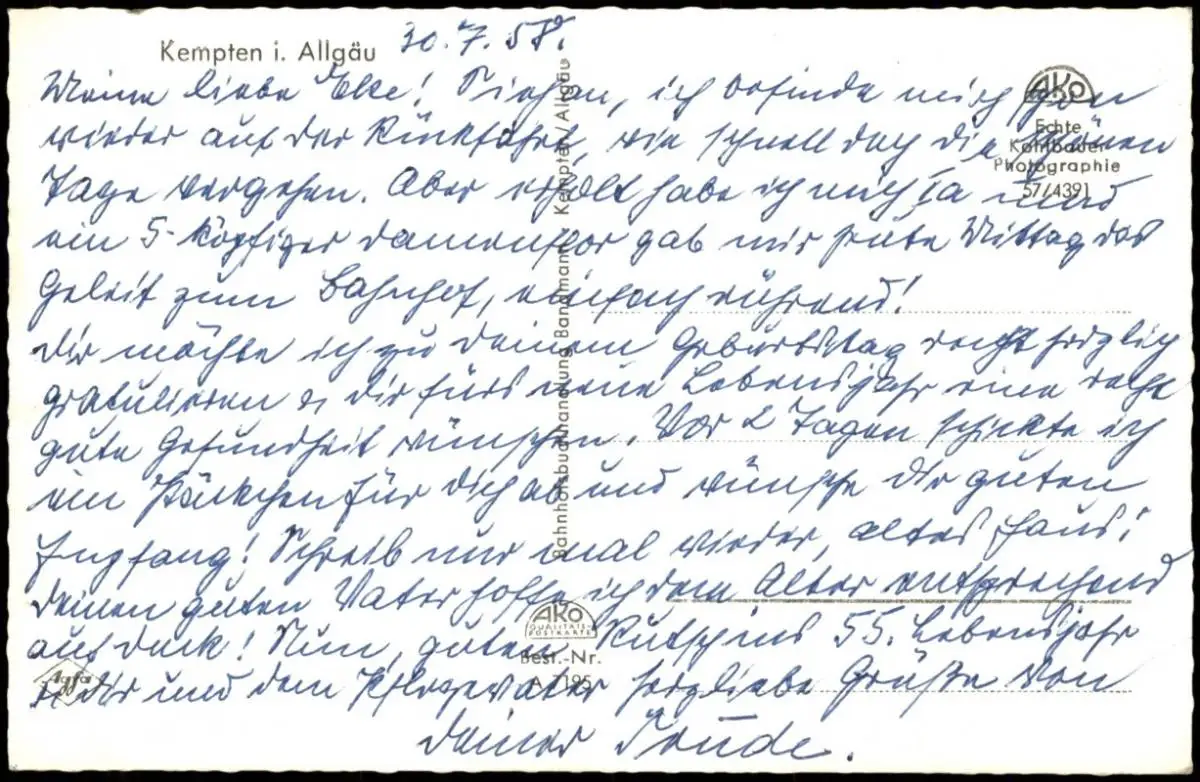 Kempten i. Allgäu 30.7.58.
Meine liebe Elke! Siehe an, ich befinde mich schon
wieder auf der Rückfahrt, wie schnell doch die schönen
Tage vergehen. Aber erholt habe ich mich ja und
ein 5-köpfiger Damenflor gab mir heute Mittag das
Geleit zum Bahnhof, einfach rührend!
Dir möchte ich zu deinem Geburtstag recht herzlich
gratulieren u. dir fürs neue Lebensjahr eine recht
gute Gesundheit wünschen. Vor 2 Tagen schickte ich
ein Päckchen für dich ab und wünsche dir guten
Empfang! Schreib nur mal wieder, altes Haus!
Deinen guten Vater hoffe ich dem Alter entsprechend
auf deck! Nun, guten Rutsch ins 55. Lebensjahr
u. dir und dem Pflegevater herzliebe Grüße von
deiner Trude.
AKO
Echte
Kohlbauer
Photographie
57/4391
Bahnhofsbuchhandlung Bandmann Kempten Allgäu
AKO
QUALITÄTS-
POSTKARTE
Best.-Nr.
A 7195
Agfa